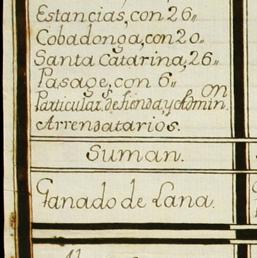 Estancias, con 26,,
Cobadonga, con 20,,
Santa Catarina, 26,,
Pasage, con 6,,
Particular de tienda y Admin.on
Arrendatarios.
Suman.
Ganado de Lana.